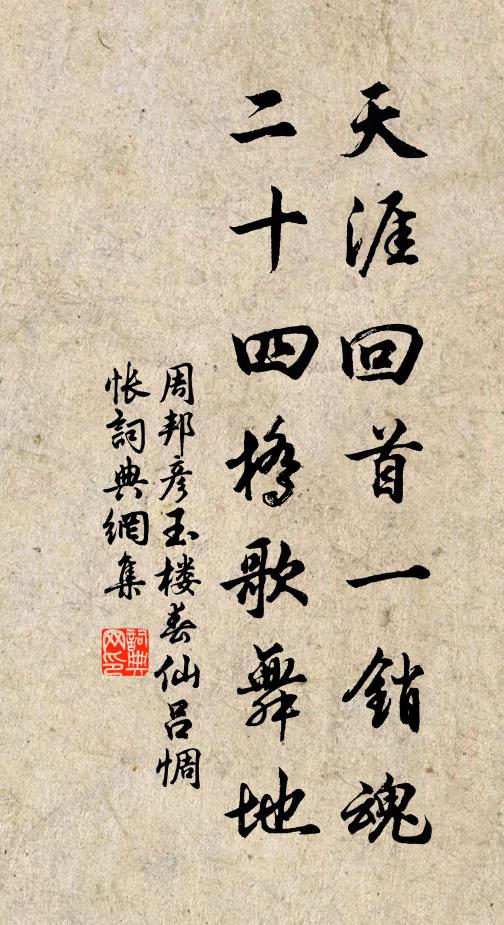 天涯回首一銷魂
二十四橋歌舞地
周邦彦玉楼春仙吕惆
怅詞典網集
詞典网印